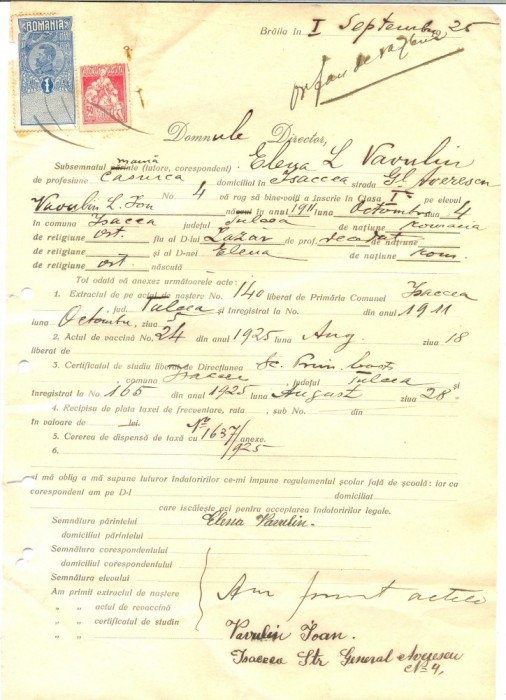 ROMANIA
1
Brăila în I Septembrie 25
orfan de razboiu
Domnule Director,
mamă
Subsemnatul părinte (tutore, corespondent) Elena L Vavulin
de profesiune casnica domiciliat în Isaccea strada Gl Averescu
No. 4 vă rog să bine-voiți a înscrie în Clasa I pe elevul
Vavulin L. Ion născut în anul 1911 luna Octombrie ziua 4
în comuna Isaccea județul Tulcea de națiune romana
de religiune ort. fiu al D-lui Lazar de prof. decedat de națiune
de religiune și al D-nei Elena de națiune rom.
de religiune ort. născută
Tot odată vă anexez următoarele acte:
1. Extractul de pe actul de naștere No. 140 liberat de Primăria Comunei Isaccea
jud. Tulcea și înregistrat la No. din anul 1911
luna Octombrie ziua 5
2. Actul de vaccină No. 24 din anul 1925 luna Aug. ziua 18
liberat de
3. Certificatul de studiu liberat de Direcțiunea Sc. Prim.
comuna Isaccea județul Tulcea
înregistrat la No. 165 din anul 1925 luna August ziua 28
4. Recipisa de plata taxei de frecventare, rata , sub No. din
în valoare de lei.
5. Cererea de dispensă de taxă cu No 1637/925 anexe.
6.
și mă oblig a mă supune tuturor îndatoririlor ce-mi impune regulamentul școlar față de școală: iar ca
corespondent am pe D-l domiciliat
care iscălește aci pentru acceptarea îndatoririlor legale.
Semnătura părintelui Elena Vavulin.
domiciliul părintelui
Semnătura corespondentului
domiciliul corespondentului
Semnătura elevului
Am primit extractul de naștere Am primit actele
„ „ actul de revaccină
„ „ certificatul de studiu Vavulin Ioan.
Isaccea Str General Averescu
No 4.